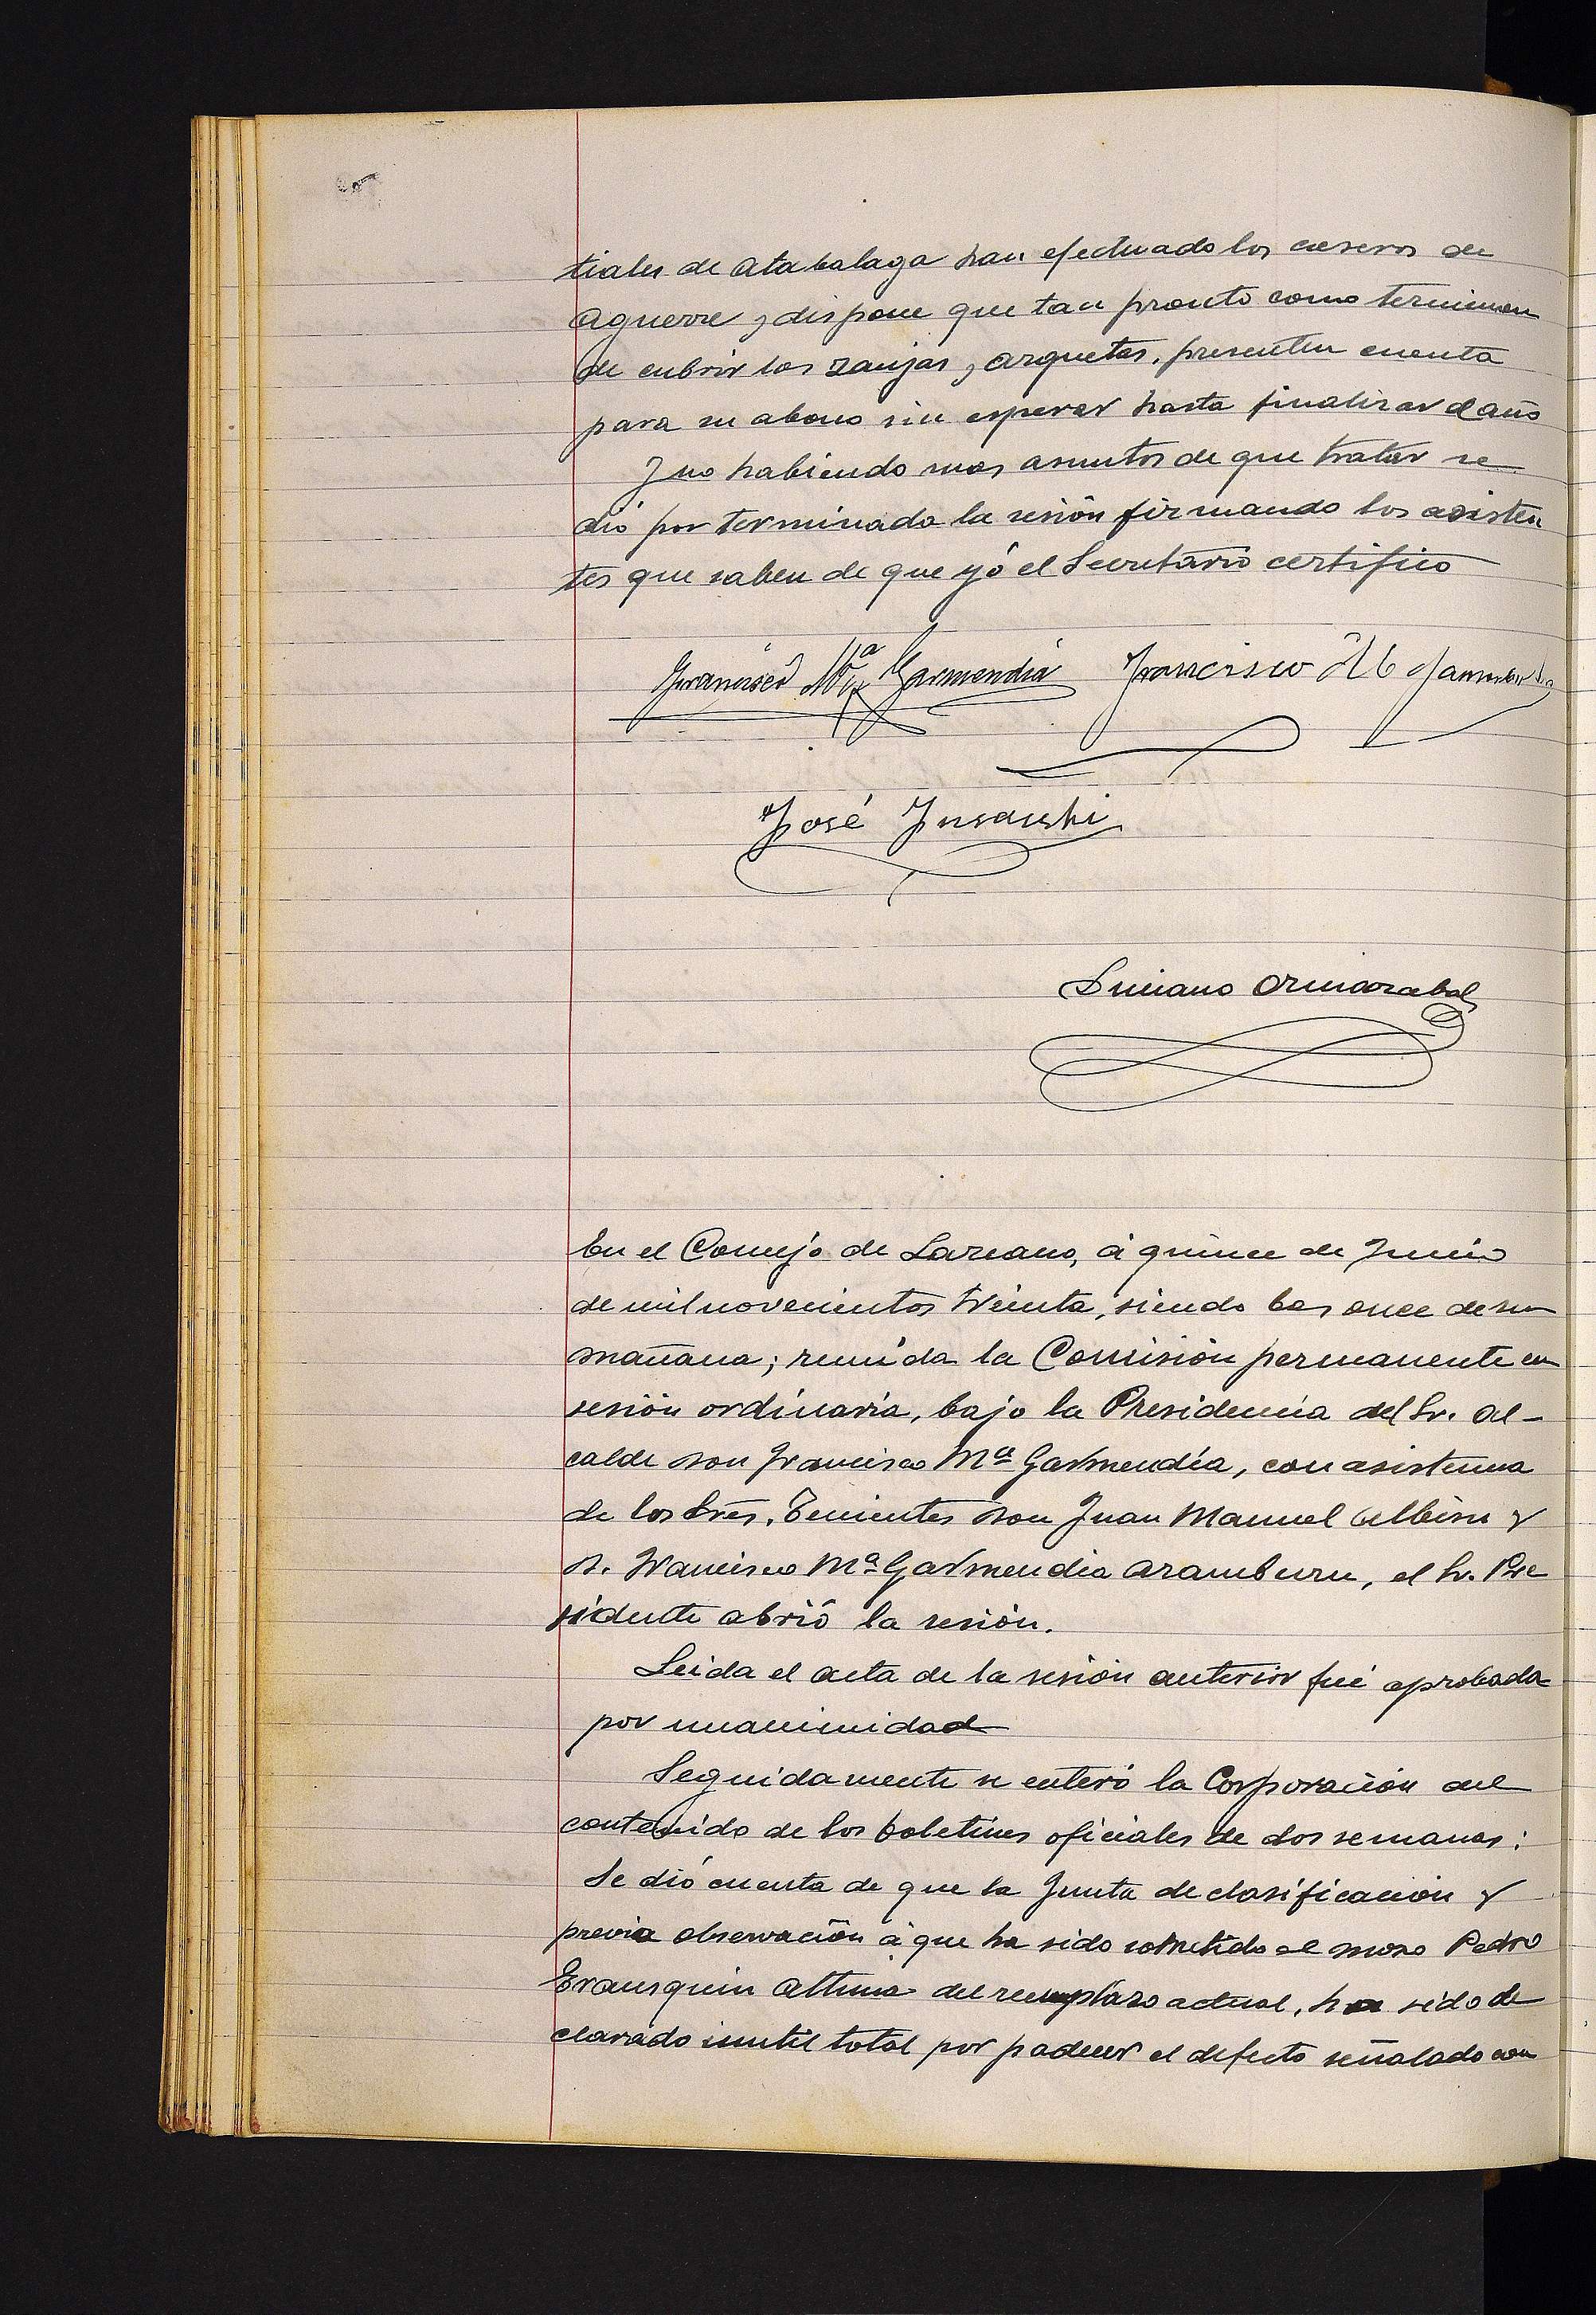 tiales de Atabalaga han efectuado los caseros de
Aguerre y dispone que tan pronto como terminen
de cubrir las zanjas y arquetas, presenten cuenta
para su abono sin esperar hasta finalizar el año
Y no habiendo mas asuntos de que tratar se
dió por terminada la sesión firmando los asisten
tes que saben de que yó el Secretario certifico
Francisco Mª Garmendia Francisco M Garmendia
José Insausti
Luciano Ormazabal
En el Concejo de Lazcano, á quince de Junio
de mil novecientos treinta, siendo las once de su
mañana; reunida la Comisión permanente en
sesión ordinaria, bajo la Presidencia del Sr. Al-
calde Don Francisco Mª Garmendia, con asistencia
de los Sres. Tenientes Don Juan Manuel Albisu y
D. Francisco Mª Garmendia Aramburu, el Sr. Pre
sidente abrió la sesión.
Leida el acta de la sesión anterior fué aprobada
por unanimidad
Seguidamente se enteró la Corporación del
contenido de los boletines oficiales de dos semanas:
Se dió cuenta de que la Junta de clasificación y
previa observación á que ha sido sometido el mozo Pedro
Erausquin Altuna del reemplazo actual, ha sido de
clarado inutil total por padecer el defecto señalado con